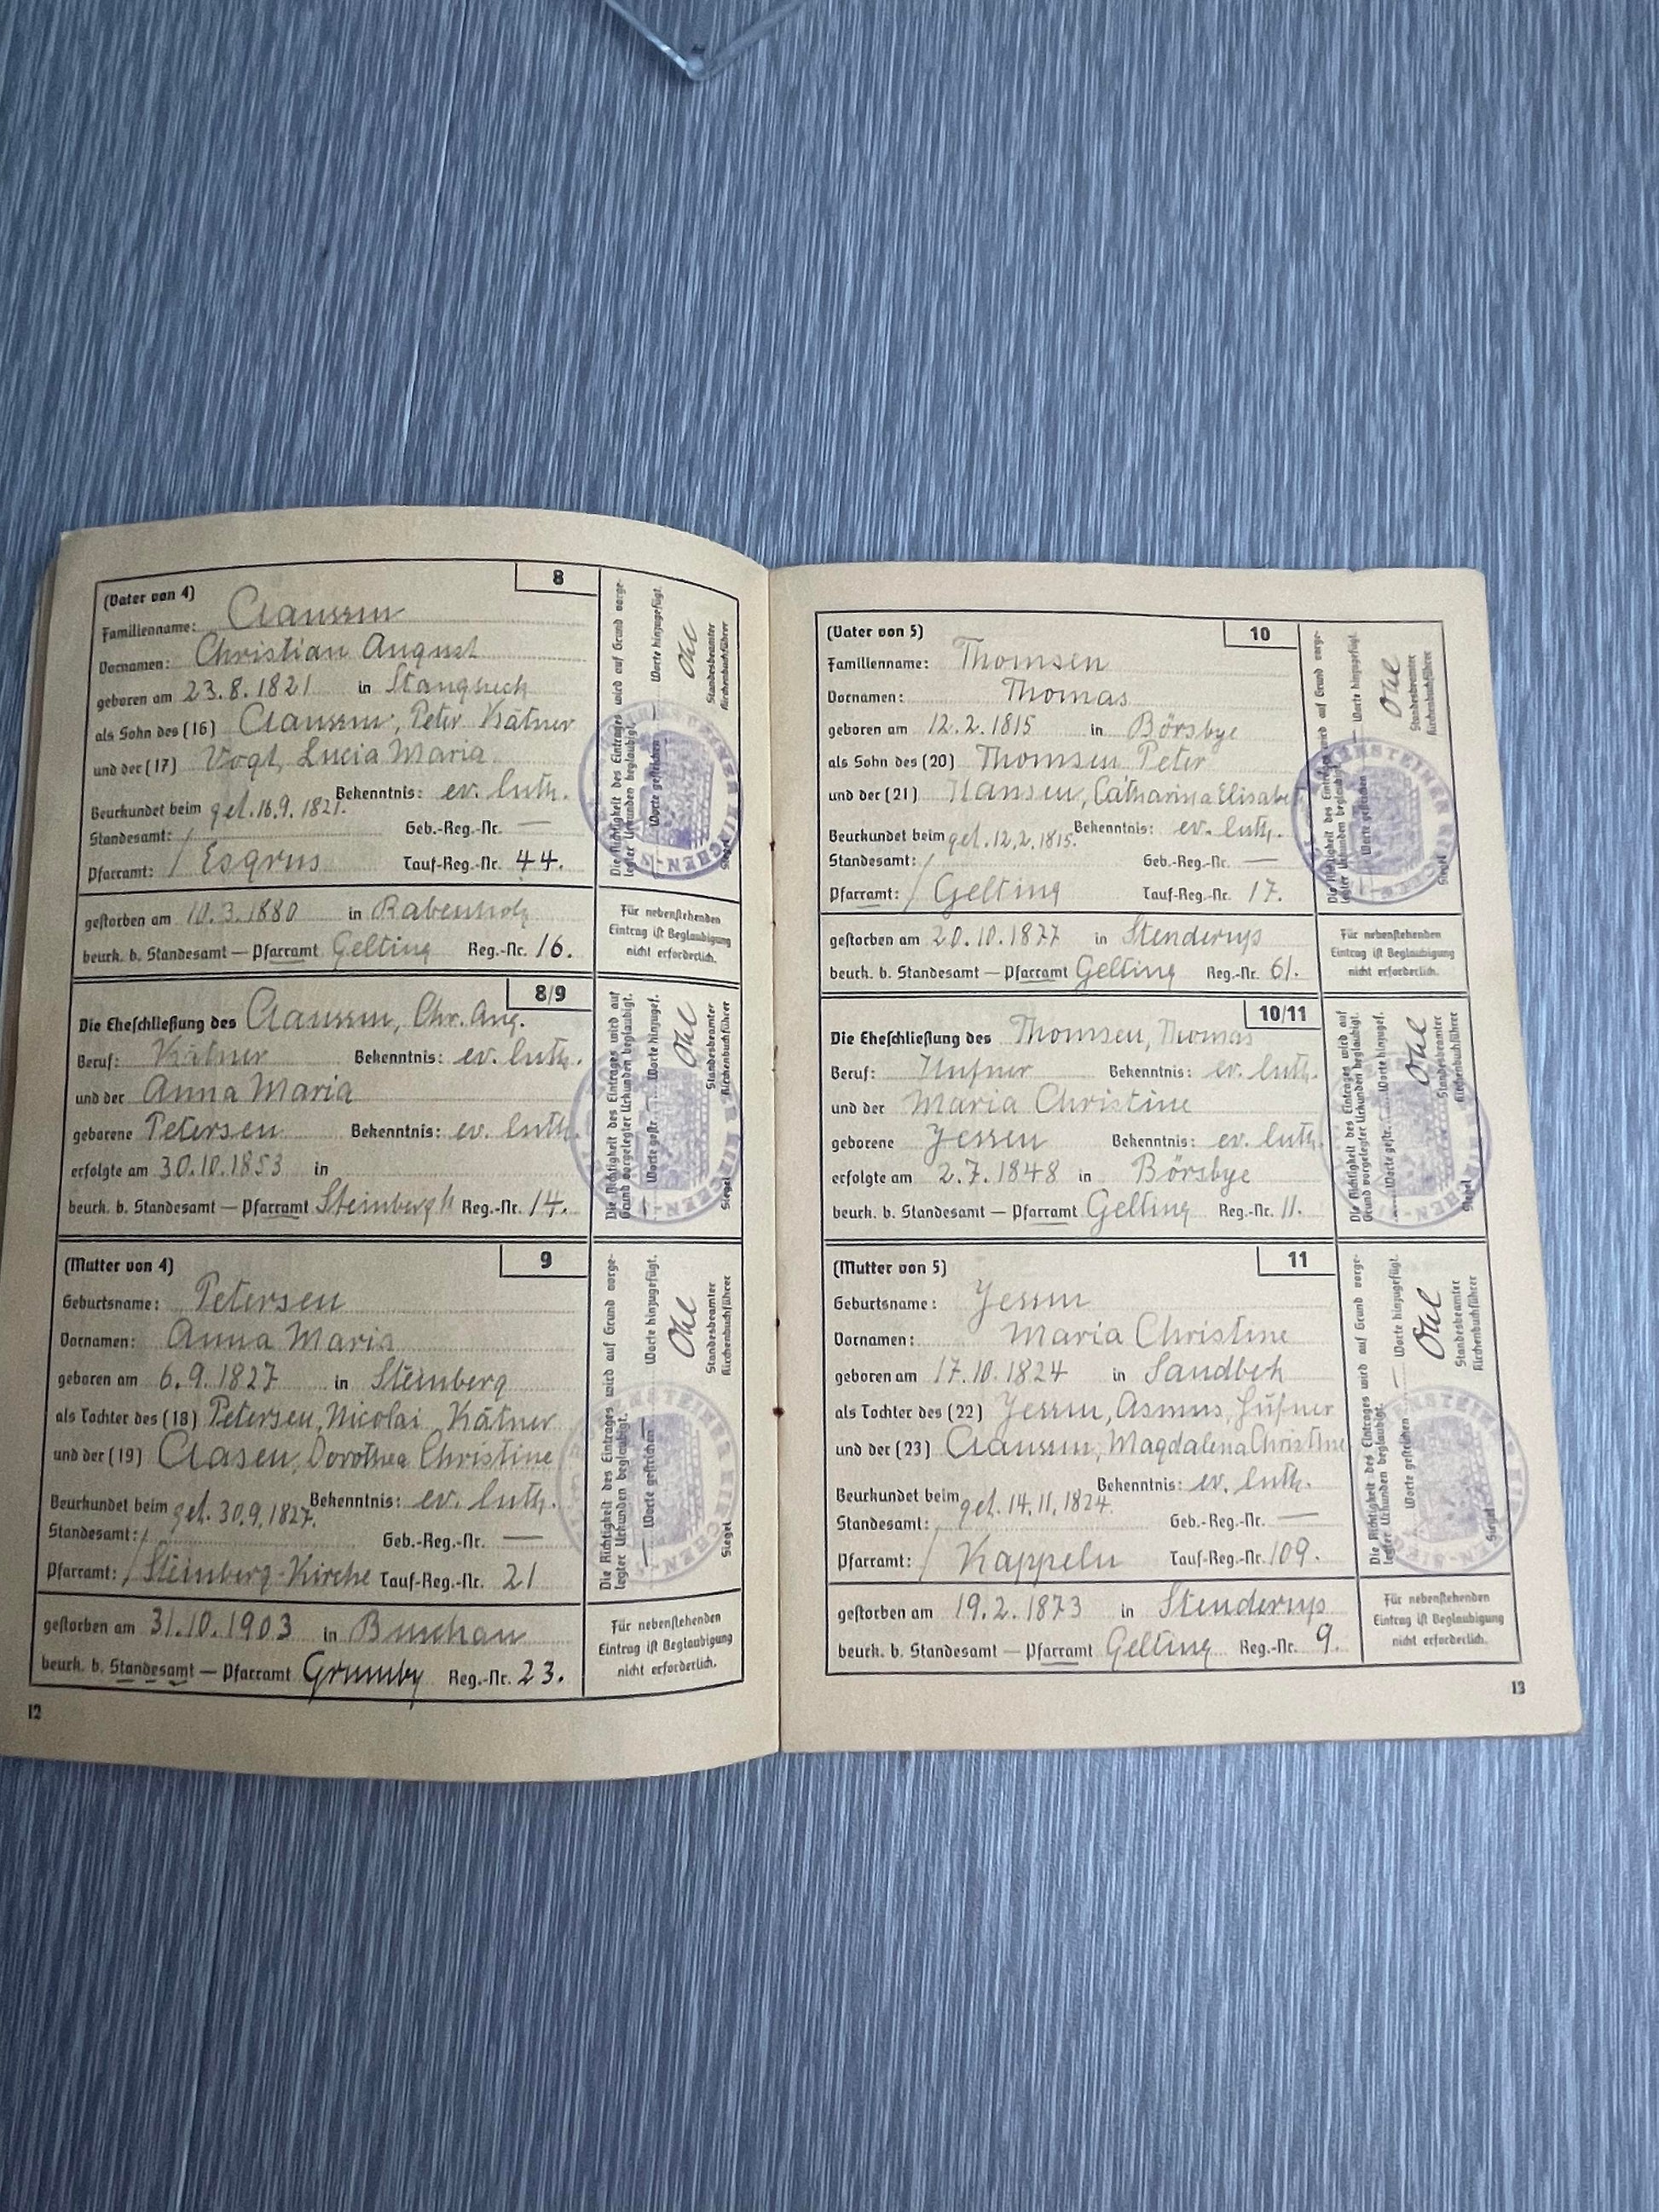 8
(Vater von 4)
Familienname: Claussen
Vornamen: Christian August
geboren am 23.8.1821 in Stangheck
als Sohn des (16) Claussen, Peter Kätner
und der (17) Vogt, Lucia Maria
Beurkundet beim get. 16.9.1821. Bekenntnis: ev. luth.
Standesamt: / Geb.-Reg.-Nr. —
Pfarramt: / Esgrus Tauf-Reg.-Nr. 44.
gestorben am 10.3.1880 in Rabenholz
beurk. b. Standesamt — Pfarramt Gelting Reg.-Nr. 16.
Die Richtigkeit des Eintrages wird auf Grund vorge-
legter Urkunden beglaubigt.
— Worte gestrichen — Worte hinzugefügt.
Ohl
Standesbeamter
Kirchenbuchführer
Siegel
Für nebenstehenden
Eintrag ist Beglaubigung
nicht erforderlich.
8/9
Die Eheschließung des Claussen, Chr. Aug.
Beruf: Kätner Bekenntnis: ev. luth.
und der Anna Maria
geborene Petersen Bekenntnis: ev. luth.
erfolgte am 30.10.1853 in
beurk. b. Standesamt — Pfarramt Steinberg Reg.-Nr. 14.
Die Richtigkeit des Eintrages wird auf
Grund vorgelegter Urkunden beglaubigt.
— Worte gestr. — Worte hinzugef.
Ohl
Standesbeamter
Kirchenbuchführer
Siegel
9
(Mutter von 4)
Geburtsname: Petersen
Vornamen: Anna Maria
geboren am 6.9.1827 in Steinberg
als Tochter des (18) Petersen, Nicolai Kätner
und der (19) Clasen, Dorothea Christine
Beurkundet beim get. 30.9.1827. Bekenntnis: ev. luth.
Standesamt: / Geb.-Reg.-Nr. —
Pfarramt: / Steinberg-Kirche Tauf-Reg.-Nr. 21
gestorben am 31.10.1903 in Buschau
beurk. b. Standesamt — Pfarramt Grumby Reg.-Nr. 23.
Die Richtigkeit des Eintrages wird auf Grund vorge-
legter Urkunden beglaubigt.
— Worte gestrichen — Worte hinzugefügt.
Ohl
Standesbeamter
Kirchenbuchführer
Siegel
Für nebenstehenden
Eintrag ist Beglaubigung
nicht erforderlich.
12
10
(Vater von 5)
Familienname: Thomsen
Vornamen: Thomas
geboren am 12.2.1815 in Börsbye
als Sohn des (20) Thomsen Peter
und der (21) Hansen, Catharina Elisabe
Beurkundet beim get. 12.2.1815. Bekenntnis: ev. luth.
Standesamt: / Geb.-Reg.-Nr. —
Pfarramt: / Gelting Tauf-Reg.-Nr. 17.
gestorben am 20.10.1877 in Stenderup
beurk. b. Standesamt — Pfarramt Gelting Reg.-Nr. 61.
Die Richtigkeit des Eintrages wird auf Grund vorge-
legter Urkunden beglaubigt.
— Worte gestrichen — Worte hinzugefügt.
Ohl
Standesbeamter
Kirchenbuchführer
Siegel
Für nebenstehenden
Eintrag ist Beglaubigung
nicht erforderlich.
10/11
Die Eheschließung des Thomsen, Thomas
Beruf: Hufner Bekenntnis: ev. luth.
und der Maria Christine
geborene Jessen Bekenntnis: ev. luth.
erfolgte am 2.7.1848 in Börsbye
beurk. b. Standesamt — Pfarramt Gelting Reg.-Nr. 11.
Die Richtigkeit des Eintrages wird auf
Grund vorgelegter Urkunden beglaubigt.
Worte gestr. Worte hinzugef.
Ohl
Standesbeamter
Kirchenbuchführer
Siegel
11
(Mutter von 5)
Geburtsname: Jessen
Vornamen: Maria Christine
geboren am 17.10.1824 in Sandbek
als Tochter des (22) Jessen, Asmus, Hüfner
und der (23) Claussen, Magdalena Christine
Beurkundet beim get. 14.11.1824. Bekenntnis: ev. luth.
Standesamt: / Geb.-Reg.-Nr. —
Pfarramt: / Kappeln Tauf-Reg.-Nr. 109.
gestorben am 19.2.1873 in Stenderup
beurk. b. Standesamt — Pfarramt Gelting Reg.-Nr. 9.
Die Richtigkeit des Eintrages wird auf Grund vorge-
legter Urkunden beglaubigt.
Worte gestrichen — Worte hinzugefügt.
Ohl
Standesbeamter
Kirchenbuchführer
Siegel
Für nebenstehenden
Eintrag ist Beglaubigung
nicht erforderlich.
13